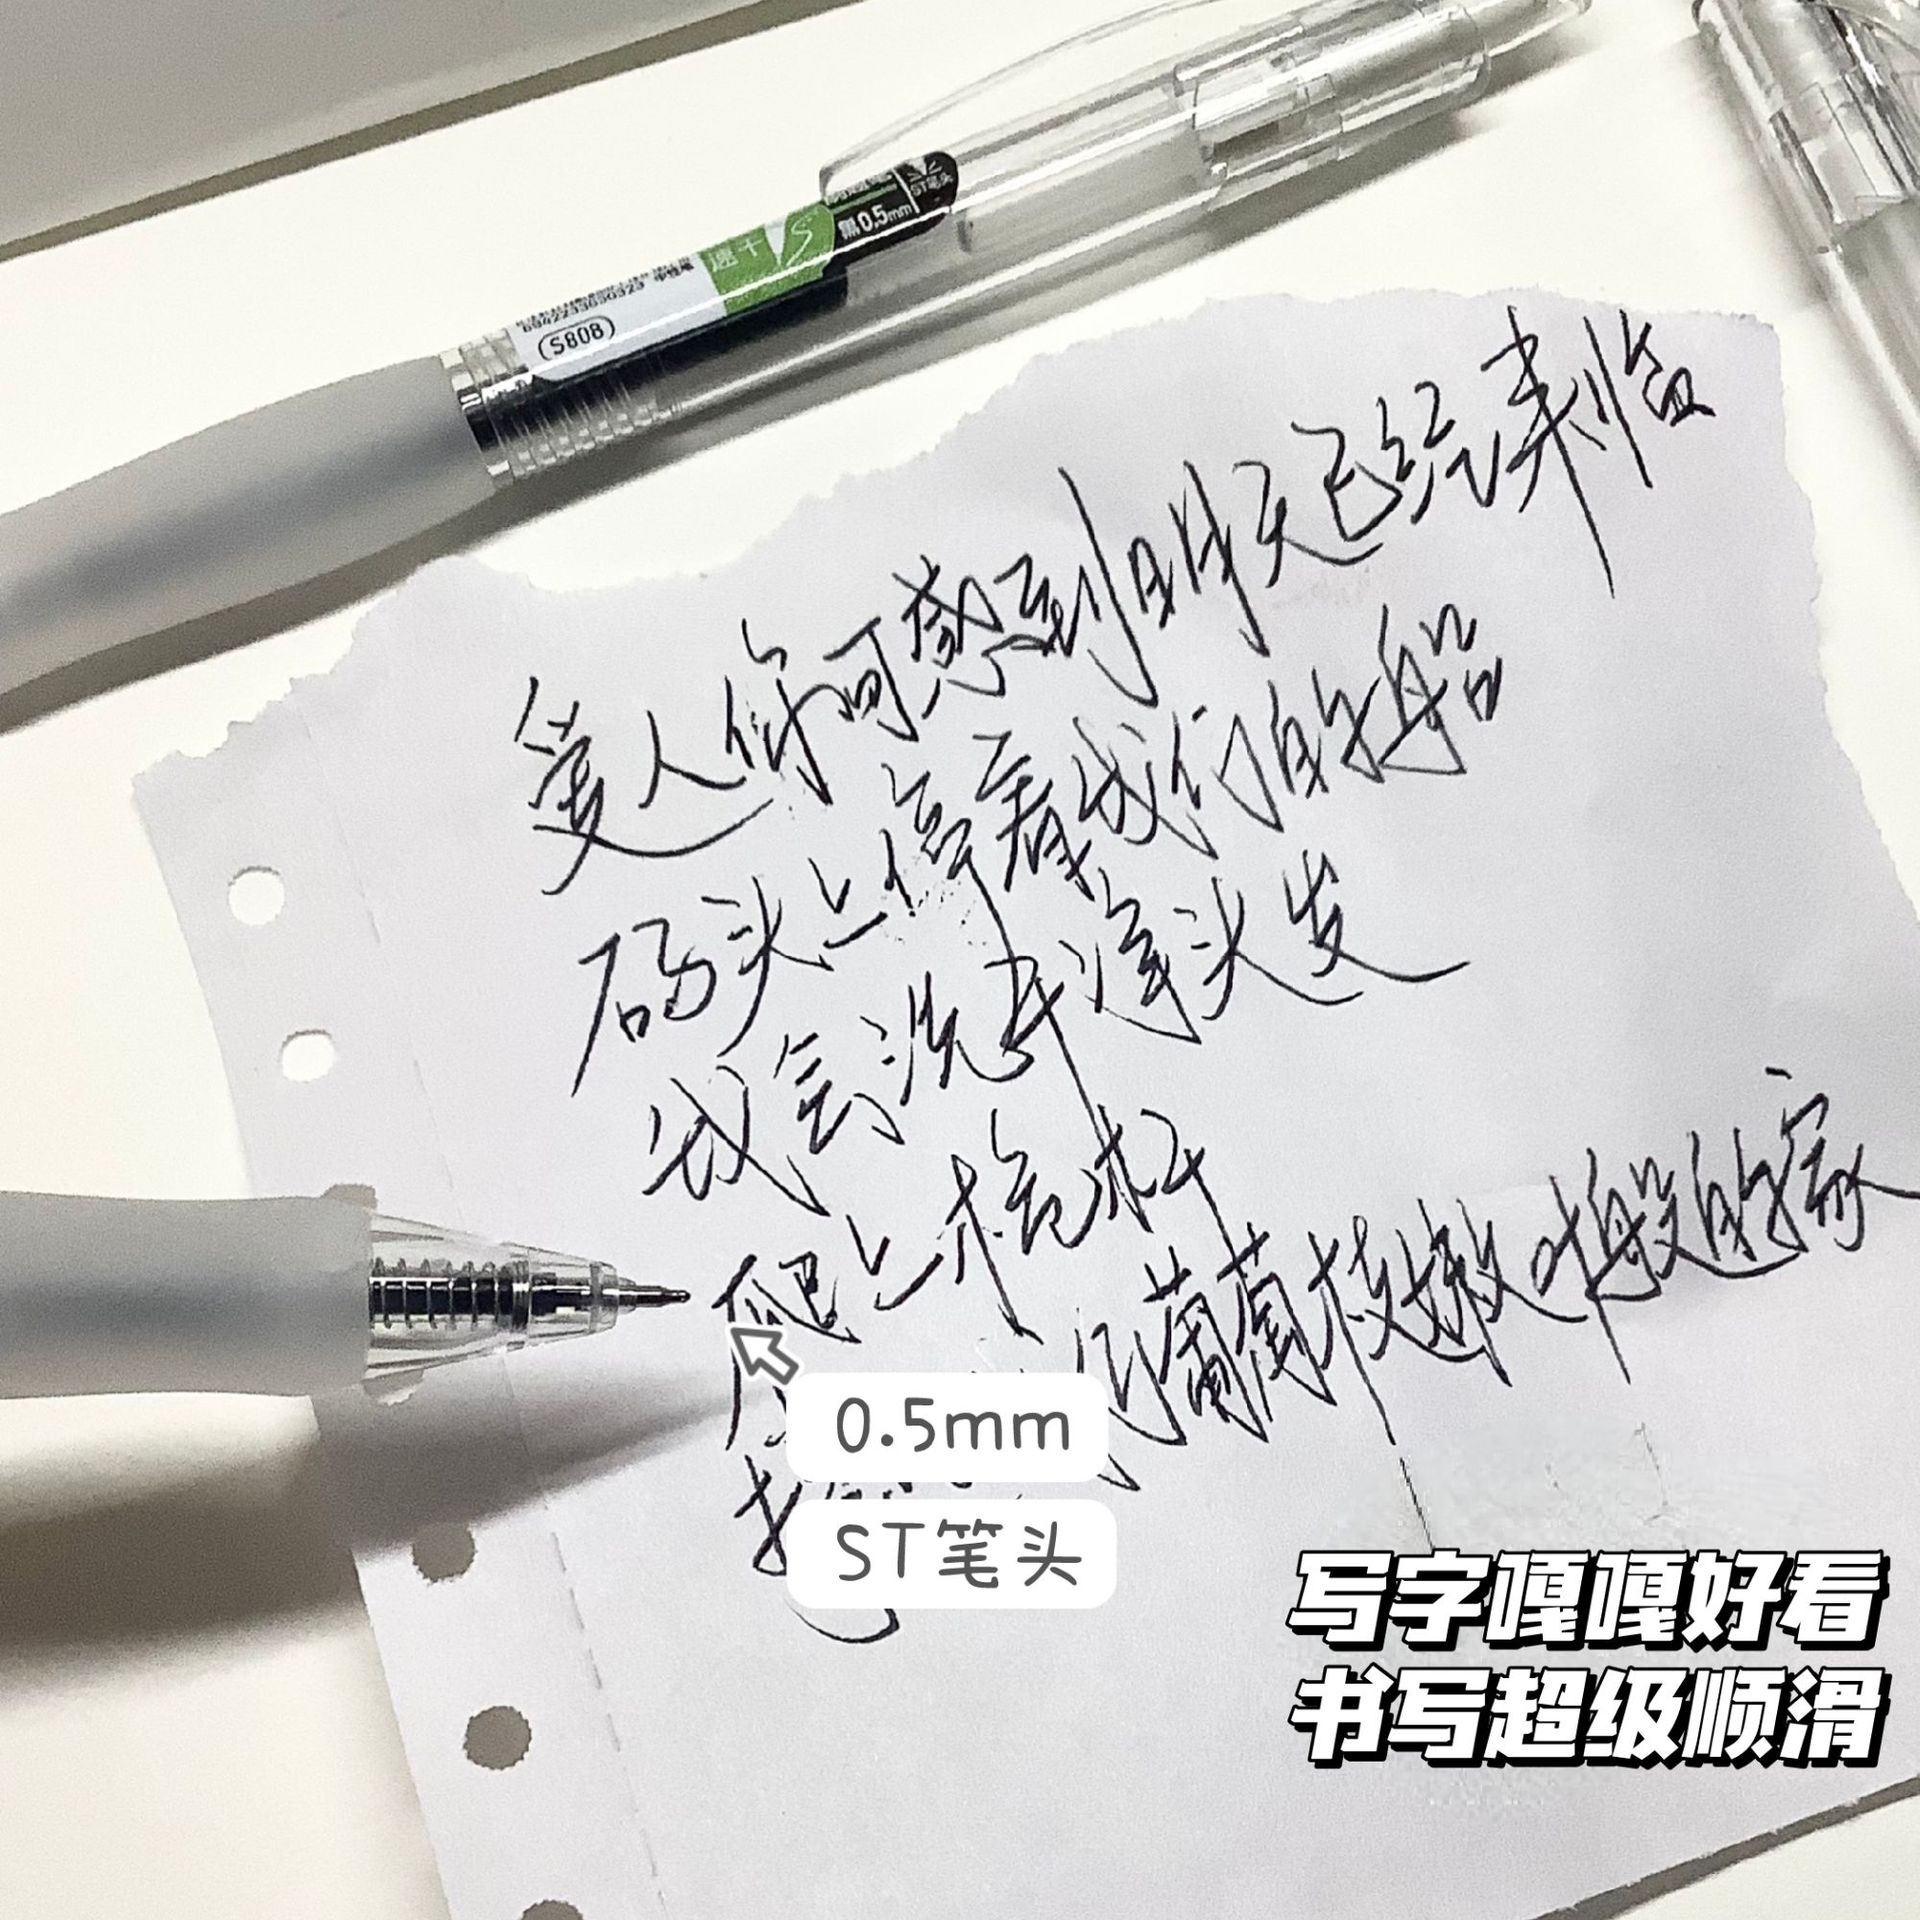 ST笔头
黑0.5mm
速干
中性笔
6942233630323
S808
爱人你可感到明天已经来临
码头上停着我们的船
我会洗干净头发
爬上桅杆
葡萄枝嫩叶般的家
0.5mm
ST笔头
写字嘎嘎好看
书写超级顺滑